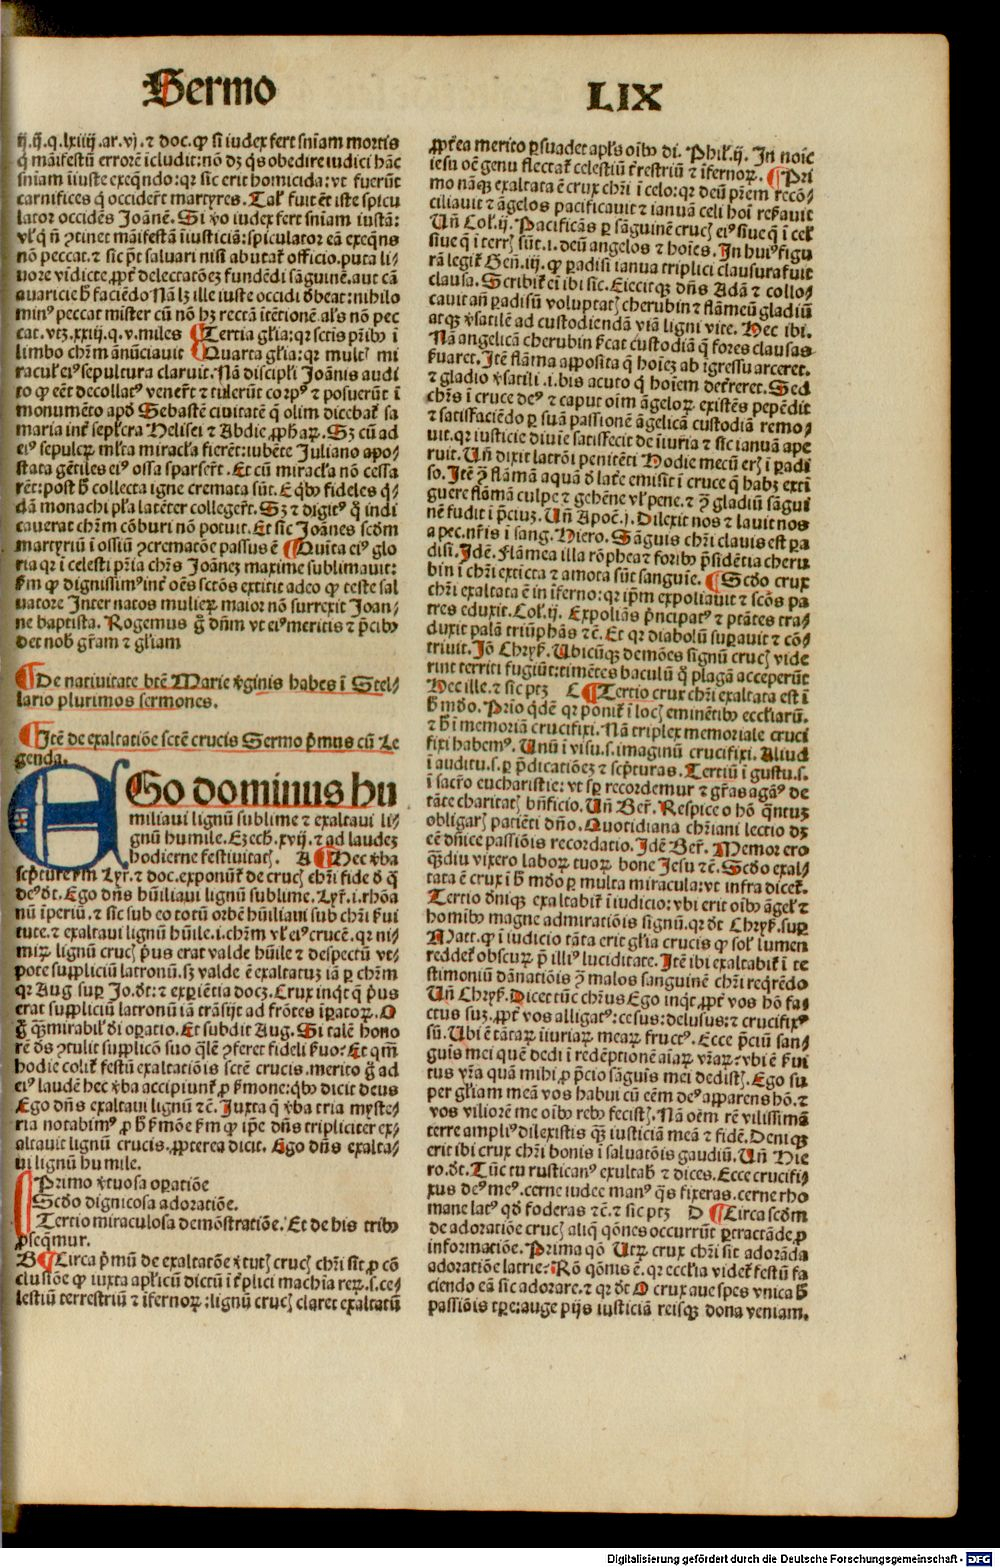 Sermo LIX
ij.q̄.q.lxiiij.ar.vj.⁊ doc. ꝙ si iudex fert sniam mortis
q̄ māifestū errorē īcludit: nō dꝫ q̇s obedire iudici hāc
sniam īiuste exeq̄ndo: qꝛ sic erit homicida: vt fuerūt
carnifices q̇ occiderūt martyres. Tal̕ fuit ēt iste spicu
lator occidēs Joānē. Si ꝟo iudex fert sniam iustā:
vl̕ q̄ nō ꝯtinet māifestā īiusticiā: spiculator eā exeq̄ns
nō peccat. ⁊ sic pōt saluari nisi abutat̕ officio. puta li⸗
uore vidicte. ꝓpt̕ delectatōeꝫ fundēdi sāguinē. aut cā
auaricie ħ faciēdo Nā lꝫ ille iuste occidi ðbeat: nihilo
minꝰ peccat mīster cū nō hꝫ rectā ītētionē al̕s nō pec
cat. vtꝫ. xxiij. q. v. miles ¶ Tertia gl̕ia: qꝛ sctis prib⁹ ī
limbo chr̄m ānūciauit ¶ Quarta gl̕ia: qꝛ multꝭ mi
racul̕ eiꝰ sepultura claruit. Nā discipl̕i Joānis audi
to ꝙ eēt decollatꝰ venerūt ⁊ tulerūt corpꝰ ⁊ posuerūt ī
monumēto apð Sebastē ciuitatē q̄ olim dicebat̕ sa
maria int̕ sepl̕cra Helisei ⁊ Abdie ꝓph̄aꝝ. Sꝫ cū ad
eiꝰ sepulcꝝ ml̕ta miracl̕a fierēt: iubēte Juliano apo⸗
stata gētiles eiꝰ ossa sparserūt. Et cū miracl̕a nō cessa
rēt: post ħ collecta igne cremata sūt. E qb⁹ fideles q̇⸗
dā monachi pl̕a latēter collegerūt. Sꝫ ⁊ digitꝰ q̇ indi
cauerat chr̄m cōburi nō potuit. Et sic Joānes scðm
martyriū ī ossiū ꝯcrematōe passus ē ¶ Quīta eiꝰ glo
ria qꝛ ī celesti pr̄ia chr̄s Joāneꝫ maxime sublimauit:
ẜm ꝙ dignissimꝰ int̕ oēs sctōs extitit adeo ꝙ teste sal
uatore Inter natos mulieꝝ maior nō surrexit Joan⸗
ne baptista. Rogemus g̊ dn̄m vt eiꝰ meritis ⁊ p̄cib⁹
det nob̕ gr̄am ⁊ gl̕iam
¶ De natiuitate bt̄e Marie ꝟginis habes ī Stel⸗
lario plurimos sermones.
¶ Itē de exaltatiōe sctē crucis Sermo p̄mus cū Le
genda.
EGo dominus hu
miliaui lignū sublime ⁊ exaltaui li⸗
gnū humile. Ezech. xvij. ⁊ ad laudeꝫ
hodierne festiuitatꝭ. A ¶ Hec ꝟba
scpturerum Lyr̕. ⁊ doc. exponūt̕ de crucꝭ chr̄i fide ð q̄
deꝰ dt. Ego dn̄s hūiliaui lignū sublime. Lyr̕. i. rhōa
nū īperiū. ⁊ sic sub eo totū orbē hūiliaui sub chr̄i ẜui
tute. ⁊ exaltaui lignū hūile. i. chr̄m vl̕ eiꝰ crucē. qꝛ ni⸗
miꝝ lignū crucꝭ p̄us erat valde hūile ⁊ despectū vt⸗
pote suppliciū latronū. sꝫ valde ē exaltatuꝫ iā ꝑ chr̄m
qꝛ Aug sup Jo. dt: ⁊ expiētia docꝫ. Crux inq̇t q̄ p̄us
erat suppliciū latronū iā trāsijt ad frōtes īꝑatoꝝ. O
g̊ q̄ꝫ mirabil̕ ði oꝑatio. Et subdit Aug. Si talē hono
rē ðs ꝯtulit supplicō suo q̄lē ꝯferet fideli ẜuo: Et qm̄
hodie colit̕ festū exaltatiōis sctē crucis. merito g̊ ad
eiꝰ laudē hec ꝟba accipiunt̕ ꝓ ẜmone: qb⁹ dicit deus
Ego dn̄s exaltaui lignū ⁊c̄. Juxta q̄ ꝟba tria myste⸗
ria notabimꝰ ꝓ ħ ẜmōe ẜm ꝙ ip̄e dn̄s tripliciter ex⸗
altauit lignū crucis. ꝓpterea dicit. Ego dn̄s exalta⸗
ui lignū humile.
Primo ꝟtuosa oꝑatiōe
Scðo dignitosa adoratiōe.
Tertio miraculosa demōstratiōe. Et de his trib⁹
ꝓseq̄mur.
B ¶ Circa p̄mū de exaltatōe ꝟtutꝭ crucꝭ chr̄i sit ꝓ cō
clusiōe ꝙ iuxta apl̕icū dictū ī t̕plici machīa reꝝ. s. ce⸗
lestiū terrestriū ⁊ īfernoꝝ: lignū crucꝭ claret exaltatū
ꝓpt̕ea merito ꝑsuadet apl̕s oīb⁹ di. Phil̕. ij. In noīe
iesu oē genu flectat̕ celestiū t̕restriū ⁊ īfernoꝝ. ¶ Pri
mo nāqꝫ exaltata ē crux chr̄i ī celo: qꝛ deū pr̄em recō⸗
ciliauit ⁊ āgelos pacificauit ⁊ ianuā celi hoī reẜauit
Un̄ Col̕. ij. Pacificās ꝑ sāguinē crucꝭ eiꝰ siue q̄ ī cel̕
siue q̄ ī terrꝭ sūt. i. deū angelos ⁊ hoīes. In huiꝰ figu
rā legit̕ Gen̄. iij. ꝙ ꝑadisi ianua triplici clausura fuit
clausa. Scribit̕ eī ibi sic. Eiecitqꝫ dn̄s Adā ⁊ collo⸗
cauit an̄ ꝑadisū voluptatꝭ cherubin ⁊ flāmeū gladiū
atqꝫ ꝟsatilē ad custodiendā viā ligni vite. Hec ibi.
Nā angelicā cherubin ẜuat custodiā q̄ fores clausas
ẜuaret. Itē flāma apposita q̄ hoīeꝫ ab īgressu arceret.
⁊ gladio ꝟsatili. i. bis acuto q̇ hoīem det̕reret. Sed
chr̄s ī cruce deꝰ ⁊ caput oīm āgeloꝝ existēs pepēdit
⁊ satisfaciēdo ꝑ suā passionē āgelicā custodiā remo⸗
uit. qꝛ iusticie diuīe satisfecit de īiuria ⁊ sic ianuā ape
ruit. Un̄ dixit latrōi penitēti Hodie mecū erꝭ ī ꝑadi
so. Itē ꝯ flāmā aquā ð lat̕e emisit ī cruce q̄ habꝫ extī
guere flāmā culpe ⁊ gehēne vl̕ pene. ⁊ ꝯ gladiū sāgui
nē fudit ī p̄ciuꝫ. Un̄ Apoc̄. j. Dilexit nos ⁊ lauit nos
a pec. nr̄is ī sang. Hiero. Sāguis chr̄i clauis est ꝑa
disi. Idē. Flāmea illa rōphea ⁊ forib⁹ p̄sidētia cheru
bin ī chr̄i exticta ⁊ amota sūt sanguīe. ¶ Scðo crux
chr̄i exaltata ē in īferno: qꝛ ip̄m expoliauit ⁊ scōs pa
tres eduxit. Col̕. ij. Expoliās p̄ncipatꝰ ⁊ ptātes tra⸗
duxit palā triūphās ⁊c̄. Et qꝛ diabolū suꝑauit ⁊ cō⸗
triuit. Jō Chrys̕. Ubicūqꝫ demōes signū crucꝭ vide
rint territi fugiūt: timētes baculū q̊ plagā acceperūt
Hec ille. ⁊ sic ptꝫ C ¶ Tertio crux chr̄i exaltata est ī
ħ mðo. Prio q̇dē qꝛ ponit̕ ī locꝭ eminētib⁹ eccl̕iarū.
⁊ ħ ī memoriā crucifixi. Nā triplex memoriale cruci
fixi habemꝰ. Unū ī visu. s. imaginū crucifixi. Aliud
ī auditu. s. ꝑ p̄dicatiōeꝫ ⁊ scp̄turas. Tertiū ī gustu. s.
ī sacr̄o eucharistie: vt sꝑ recordemur ⁊ gr̄as agāꝰ de
tāte charitatꝭ bn̄ficio. Un̄ Ber̄. Respice o hō q̄ntuꝫ
obligarꝭ patiēti dn̄o. Quotidiana chr̄iani lectio dꝫ
eē dn̄ice passiōis recordatio. Idē Ber̄. Memor ero
q̄ꝫdiu vixero laboꝝ tuoꝝ bone Jesu ⁊c̄. Scðo exal⸗
tata ē crux ī ħ mðo ꝑ multa miracula: vt infra dicet̕.
Tertio ðniqꝫ exaltabit̕ ī iudicio: vbi erit oīb⁹ āgel̕ ⁊
homīb⁹ magne admiratiōis signū. qꝛ dt Chrys̕. suꝑ
Matt. ꝙ ī iudicio tāta erit gl̕ia crucis ꝙ sol̕ lumen
reddet̕ obscuꝝ p̄ illiꝰ luciditate. Itē ibi exaltabit̕ ī te
stimoniū dānatiōis ꝯ malos sanguinē chr̄i req̇rēdo
Un̄ Chrys̕. Dicet tūc chr̄us Ego inq̇t. ꝓpt̕ vos hō fa⸗
ctus suꝫ. ꝓpt̕ vos alligatꝰ: cesus: delusus: ⁊ crucifixꝰ
sū. Ubi ē tātaꝝ īiuriaꝝ meaꝝ fructꝰ. Ecce p̄ciū san⸗
guis mei quē dedi ī redēptionē aīaꝝ vr̄aꝝ: vbi ē ẜui
tus vr̄a quā mihi ꝓ p̄cio sāguīs mei dedistꝭ. Ego su
per gl̕iam meā vos habui cū eēm deꝰ apparens hō. ⁊
vos viliorē me oīb⁹ reb⁹ fecistꝭ. Nā oēm rē vilissimā
terre ampliꝰ dilexistis q̄ꝫ iusticiā meā ⁊ fidē. Deniqꝫ
erit ibi crux chr̄i bonis ī saluatōis gaudiū. Un̄ Hie
ro. dt. Tūc tu rusticanꝰ exultab̕ ⁊ dices. Ecce crucifi⸗
xus deꝰ meꝰ. cerne iudee manꝰ q̄s fixeras. cerne rho
mane latꝰ qð foderas ⁊c̄. ⁊ sic ptꝫ D ¶ Circa scðm
de adoratiōe crucꝭ aliq̄ qōnes occurrūt ꝑtractāde ꝓ
informatiōe. Prima qō Utꝝ crux chr̄i sit adorāda
adoratiōe latrie: Rō qōnis ē. qꝛ eccl̕ia videt̕ festū fa
ciendo eā sic adorare. ⁊ qꝛ dt O crux aue spes vnica ħ
passiōis tꝑe: auge pijs iusticiā reisqꝫ dona veniam.
Digitalisierung gefördert durch die Deutsche Forschungsgemeinschaft - DFG